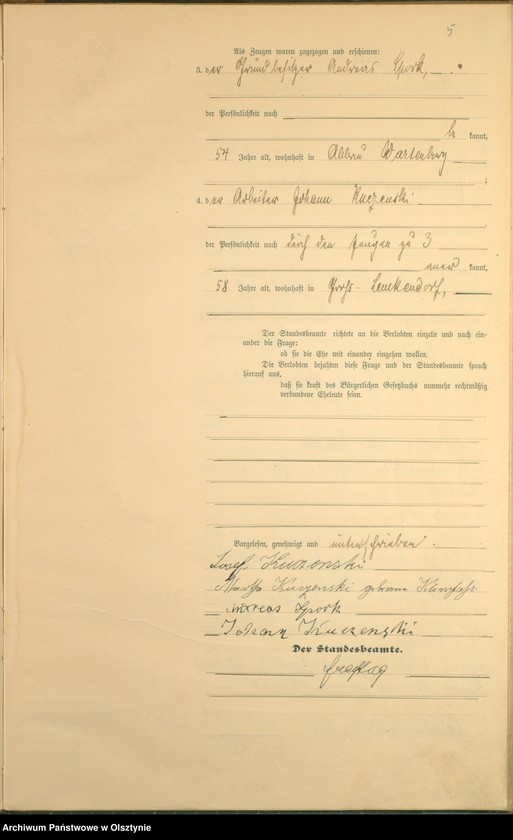 5
Als Zeugen waren zugezogen und erschienen:
3. der Grundbesitzer Andreas Spork,
der Persönlichkeit nach
be kannt,
54 Jahre alt, wohnhaft in Abbau Wartenburg
;
4. der Arbeiter Johann Kuczenski
der Persönlichkeit nach durch den Zeugen zu 3
aner kannt,
58 Jahre alt, wohnhaft in Groß-Lemkendorf,
Der Standesbeamte richtete an die Verlobten einzeln und nach ein-
ander die Frage:
ob sie die Ehe mit einander eingehen wollen.
Die Verlobten bejahten diese Frage und der Standesbeamte sprach
hierauf aus,
daß sie kraft des Bürgerlichen Gesetzbuchs nunmehr rechtmäßig
verbundene Eheleute seien.
Vorgelesen, genehmigt und unterschrieben.
Josef Kuczenski
Martha Kuczenski geborene
Andreas Spork
Johann Kuczenski
Der Standesbeamte.
Freytag
Archiwum Państwowe w Olsztynie